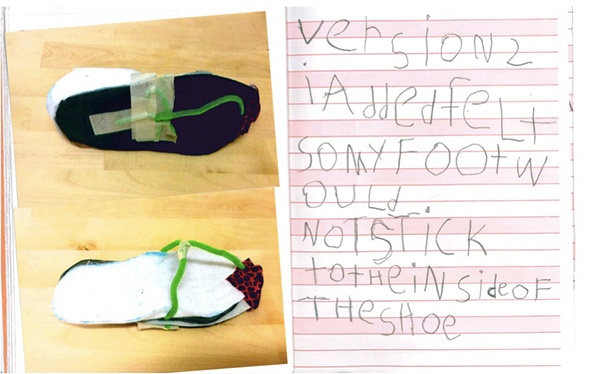 version2
iAddedfeLt
SOMYFOOtW
OULd.
NOTSTICK
totHeiNSideOF
THeSHOe